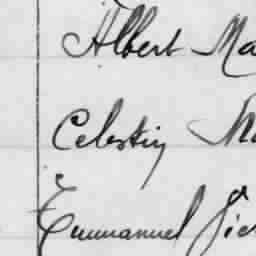 Albert Ma
Celestin Ma
Emmanuel